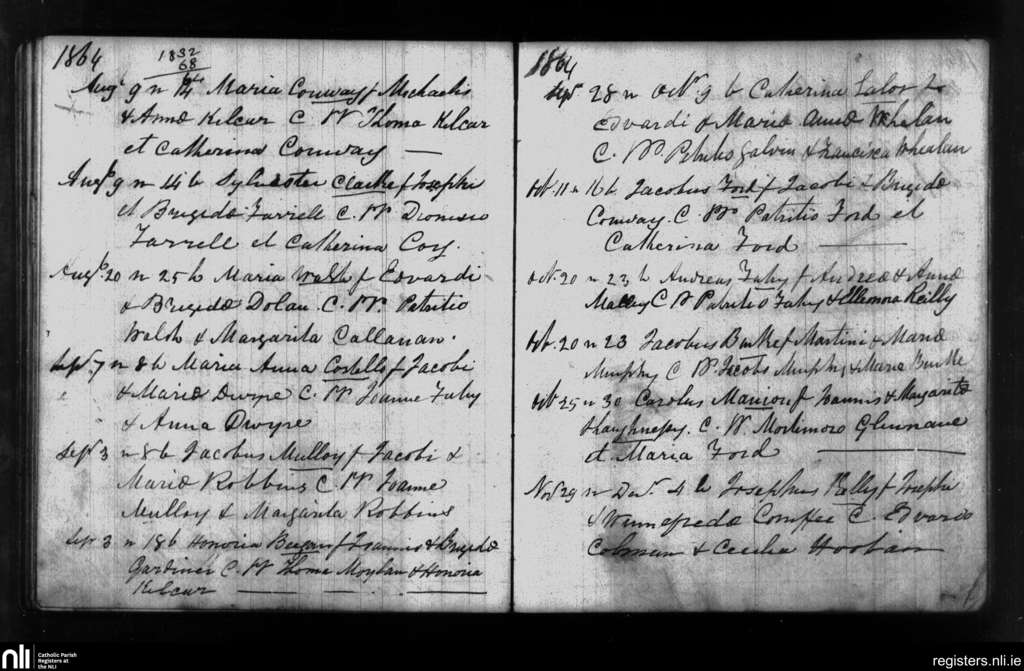 1864
1832
68
Augt 9 n 14 Maria Conway f Michaelis
& Annæ Kilcur C. W Thoma Kilcar
et Catherina Conway —
Augt 9 n 14 b Sylvester Clarke f Josephi
et Brigidæ Farrell C. W. Dionisio
Farrell et Catherina Coy.
Augt. 20 n 25 b Maria Walsh f Edvardi
& Brigidæ Dolan. C. W. Patritio
Walsh & Margarita Callanan.
Sep. 7 n 8 b Maria Anna Costello f Jacobi
& Mariæ Dwyre C. W Joanne Fahy
& Anna Dwyre
Sept 3 n 8 b Jacobus Mulloy f Jacobi &
Mariæ Robbins C. W Joanne
Mulloy & Margarita Robbins
Sep. 3 n 18 b Honoria f Joannis & Brigidæ
Gardiner C. W Thoma Moylan & Honoria
Kilcur — — —
1864
Sepr. 28 n Octr. 9 b Catherina Lalor to
Edvardi & Maria Annæ Whelan
C. W. Galvin & Francisca Whealan
Oct. 11 n 16 b Jacobus Ford f Jacobi & Brigidæ
Conway. C. W. Patritio Ford et
Catherina Ford —
Oct. 20 n 23 b Andreas Fahy f Andreæ & Annæ
Malley C W Patritio Fahy & Ellenora Reilly
Oct. 20 n 23 Jacobus Burke f Martini & Mariæ
Murphy C W. Jacobo Murphy & Maria Burke
Oct 25 n 30 Carolus Manion f Joannis & Margaritæ
C. W. Mortimoro Glennane
et Maria Ford —
Nov 29 n Decr. 4 b Josephus Kelly f Josephi
& Winnefredæ C. Edvardo
Colman & Cecilia Hoolian
nli Catholic Parish
Registers at
the NLI
registers.nli.ie